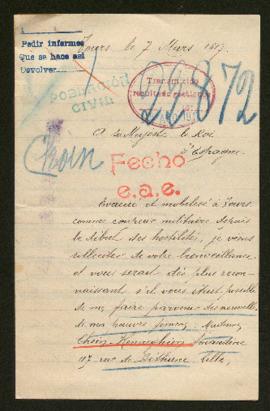 Pedir informes
Que se haga así
Devolver
Tours, le 7 Mars 1917.
POBLACIÓN
CIVIL
Transmitido
22872
A sa Majesté le Roi
d'Espagne.
Choin
Fecho
e.a.e.
Évacué et mobilisé à Tours
comme militaire depuis
le début des hostilités, je viens
solliciter de votre bienveillance
et vous serait dès plus recon-
naissant s'il vous était possible
de me faire parvenir des nouvelles
de ma pauvre femme, Madame
Choin
117 rue de Béthune Lille,